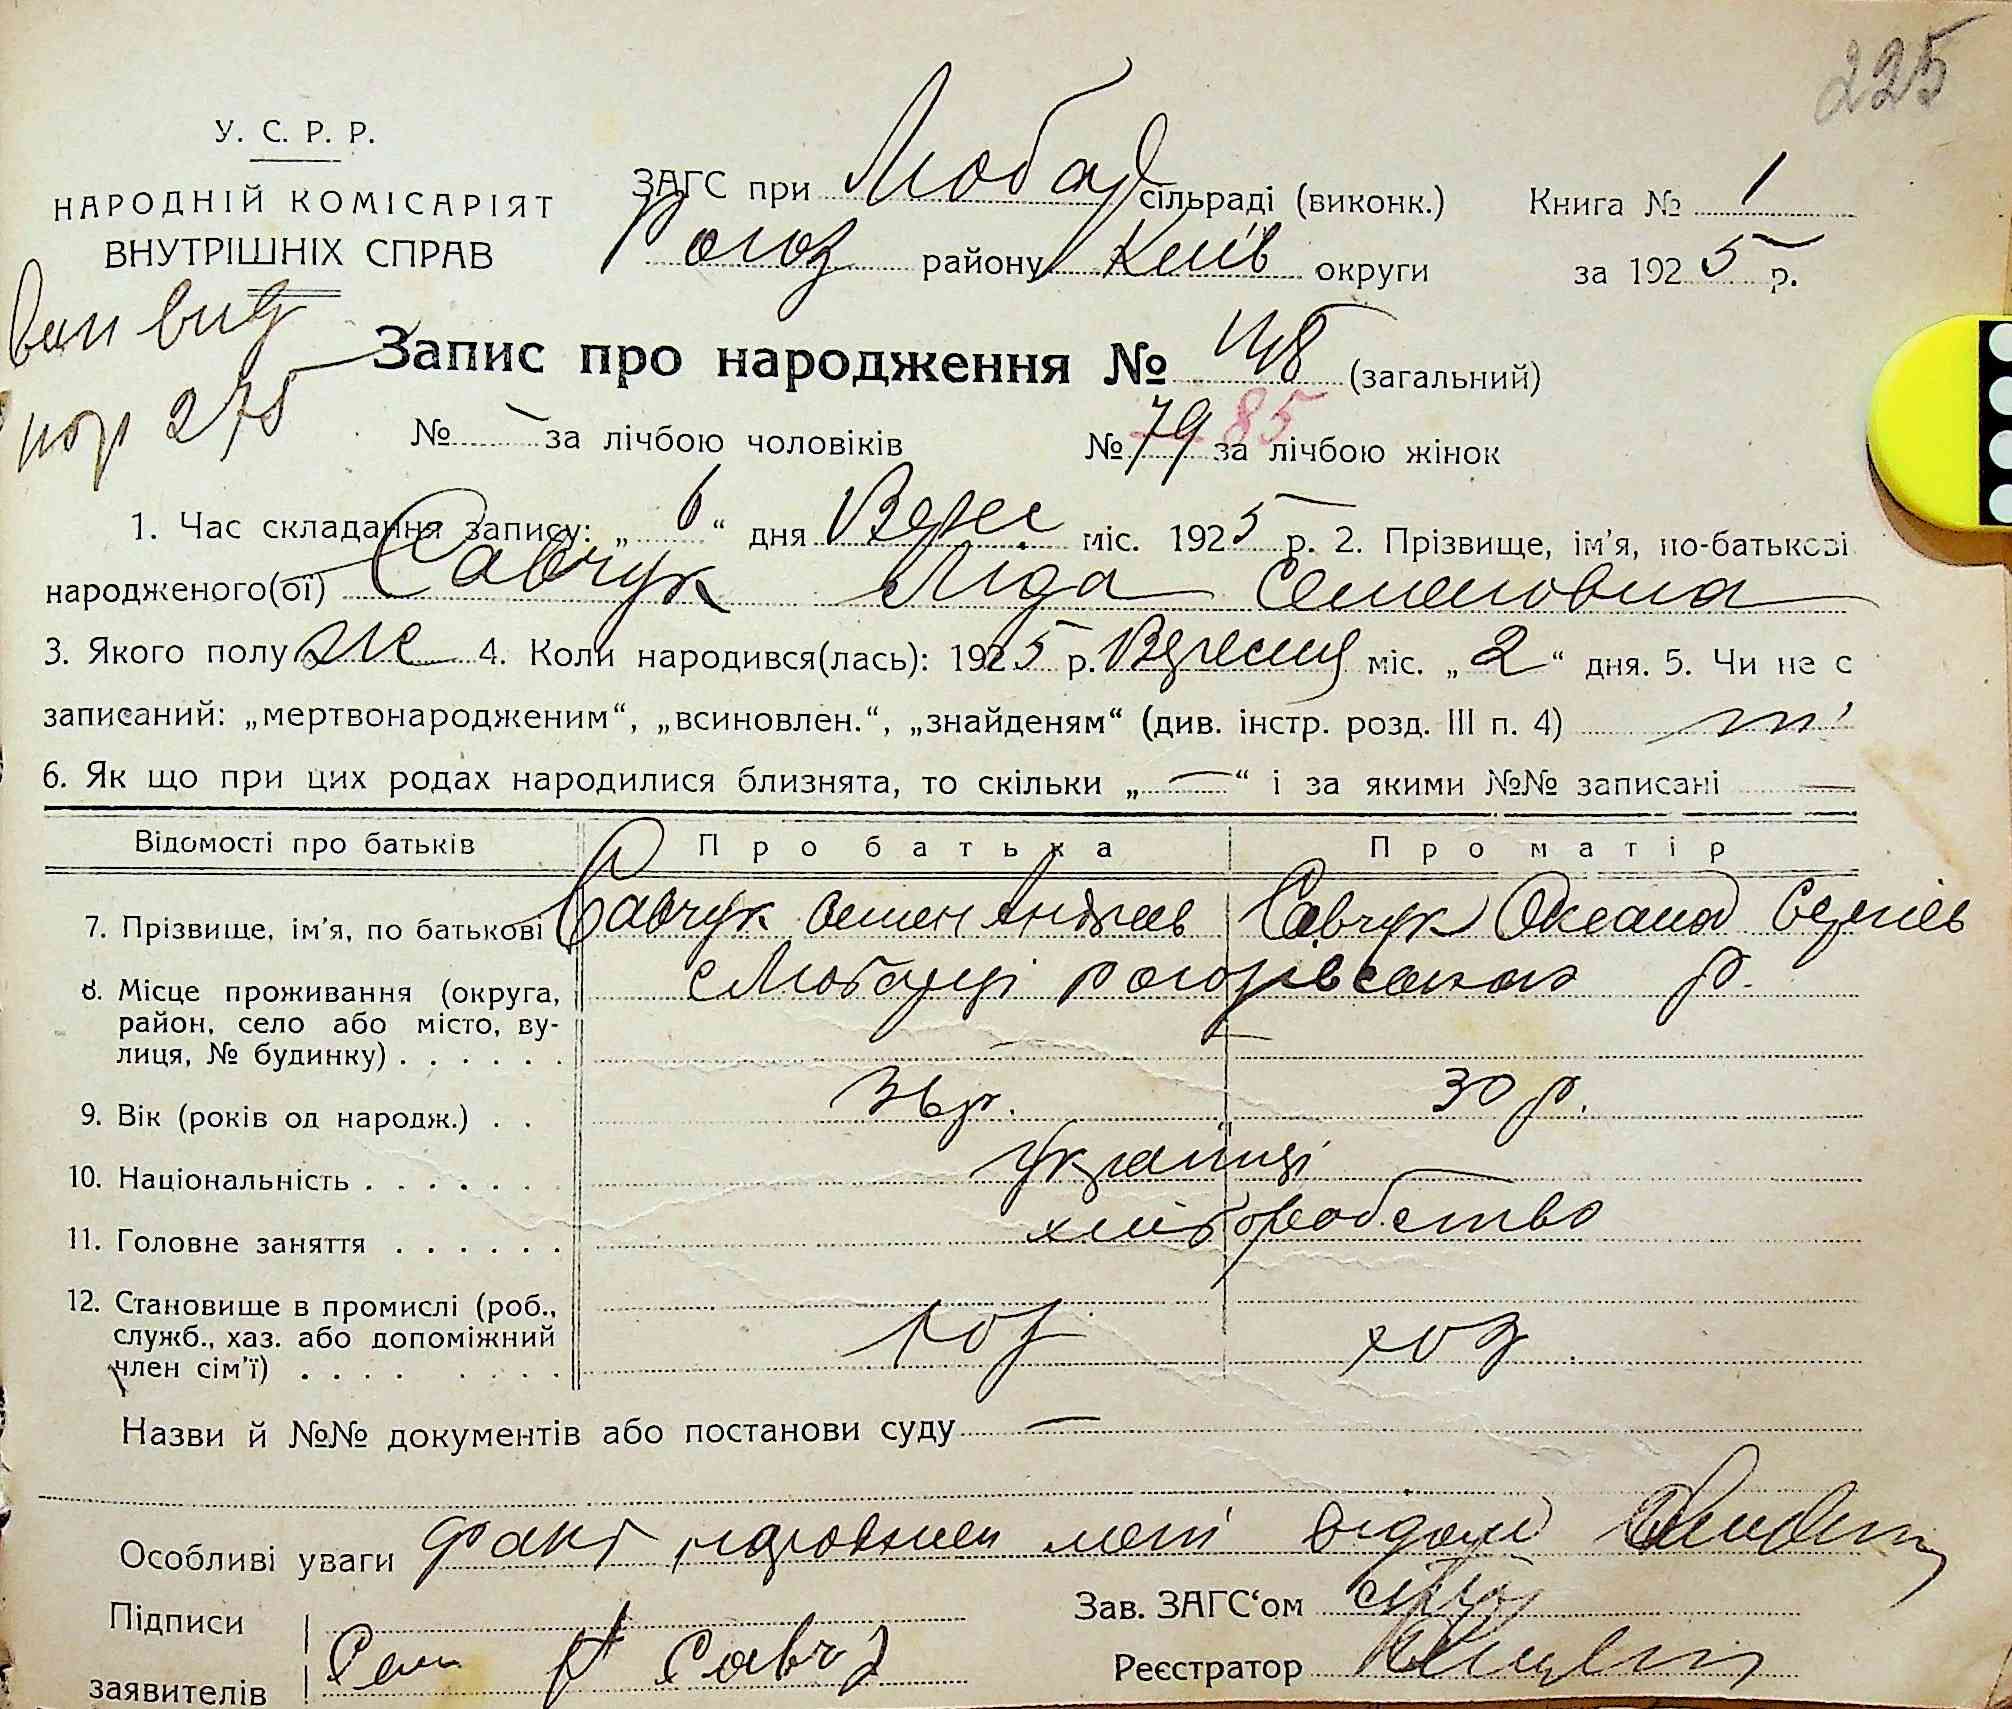 225
У. С. Р. Р.
НАРОДНІЙ КОМІСАРІЯТ
ВНУТРІШНІХ СПРАВ
ЗАГС при Любар сільраді (виконк.) Книга № 1
Рогоз району Київ округи за 1925 р.
Запис про народження № (загальний)
пор 275
№ - за лічбою чоловіків № 79 85 за лічбою жінок
1. Час складання запису: „6“ дня Верес міс. 1925 р. 2. Прізвище, ім'я, по-батькові
народженого(ої) Савчук Ліда Семеновна
3. Якого полу ж 4. Коли народився(лась): 1925 р. Вересня міс. „2“ дня. 5. Чи не є
записаний: „мертвонародженим“, „всиновлен.“, „знайденям“ (див. інстр. розд. III п. 4) ні
6. Як що при цих родах народилися близнята, то скільки „—“ і за якими №№ записані —
Відомості про батьків Про батька Про матір
7. Прізвище, ім'я, по батькові Савчук Семен Андреев Савчук Оксана Сергіев
8. Місце проживання (округа, район, село або місто, вулиця, № будинку) с Любарці рогозівського р.
9. Вік (років од народж.) 36 р. 30 р.
10. Національність Українці
11. Головне заняття хліборобство
12. Становище в промислі (роб., служб., хаз. або допоміжний член сім'ї) хоз хоз
Назви й №№ документів або постанови суду —
Особливі уваги факт народження мені відом
Підписи Зав. ЗАГС'ом
заявителів Сем Савчу Реєстратор